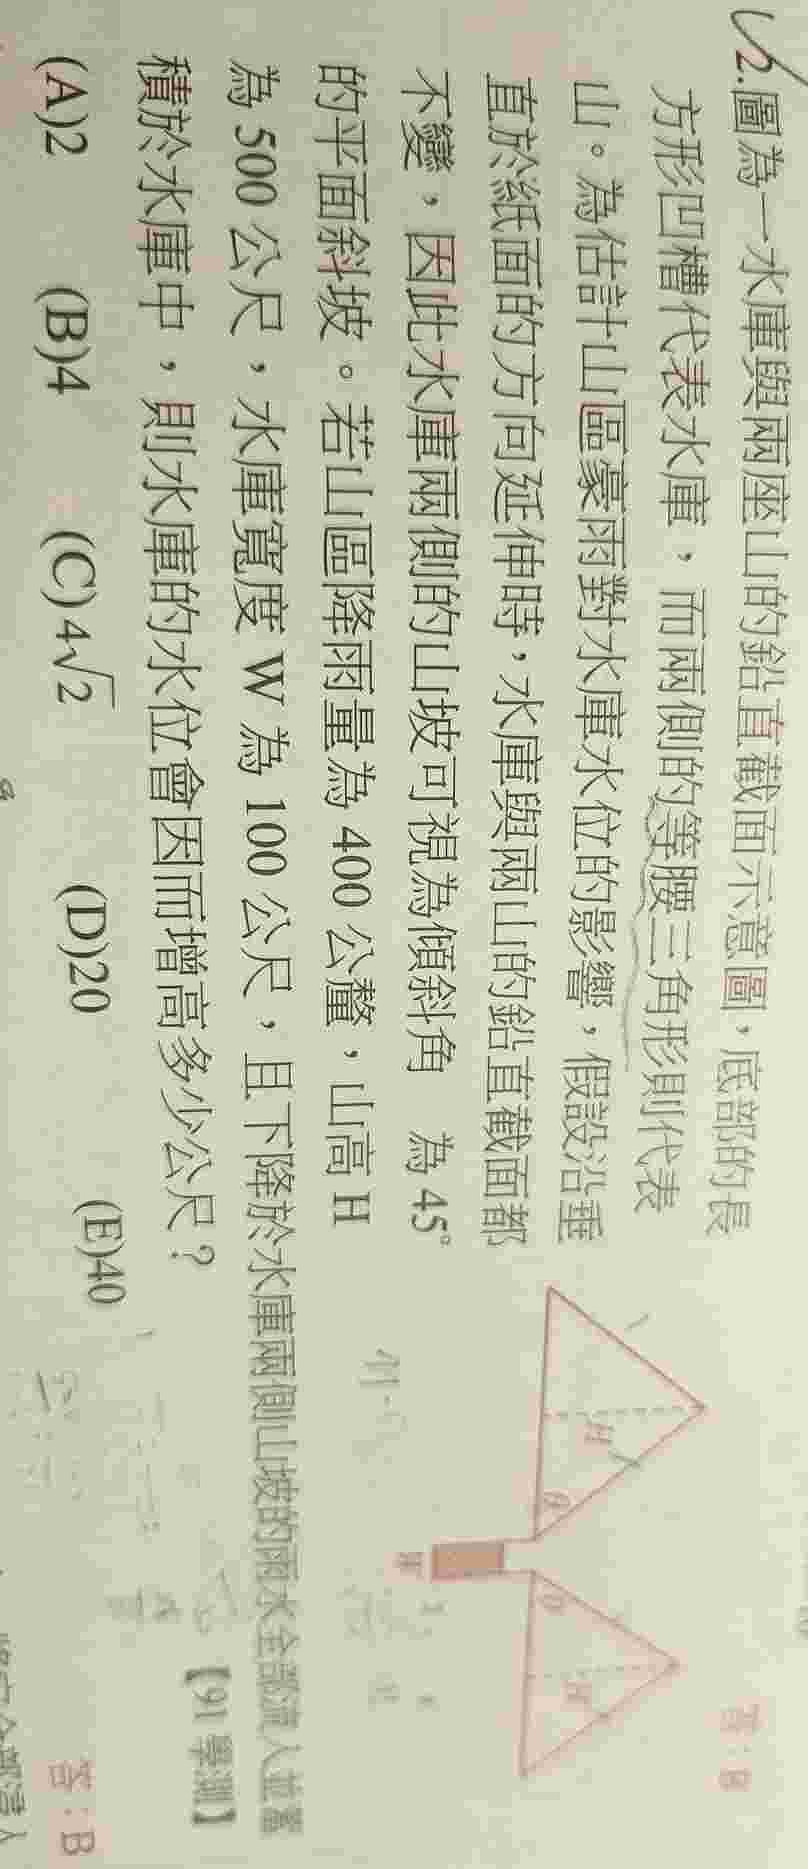 2.圖為一水庫與兩座山的鉛直截面示意圖，底部的長
方形凹槽代表水庫，而兩側的等腰三角形則代表
山。為估計山區豪雨對水庫水位的影響，假設沿垂
直於紙面的方向延伸時，水庫與兩山的鉛直截面都
不變，因此水庫兩側的山坡可視為傾斜角 為 45°
的平面斜坡。若山區降雨量為 400 公釐，山高 H
為 500 公尺，水庫寬度 W 為 100 公尺，且下降於水庫兩側山坡的雨水全部流入並蓄
積於水庫中，則水庫的水位會因而增高多少公尺？
【91 學測】
(A)2 (B)4 (C)4√2 (D)20 (E)40
答：B
H
θ
W
θ
H